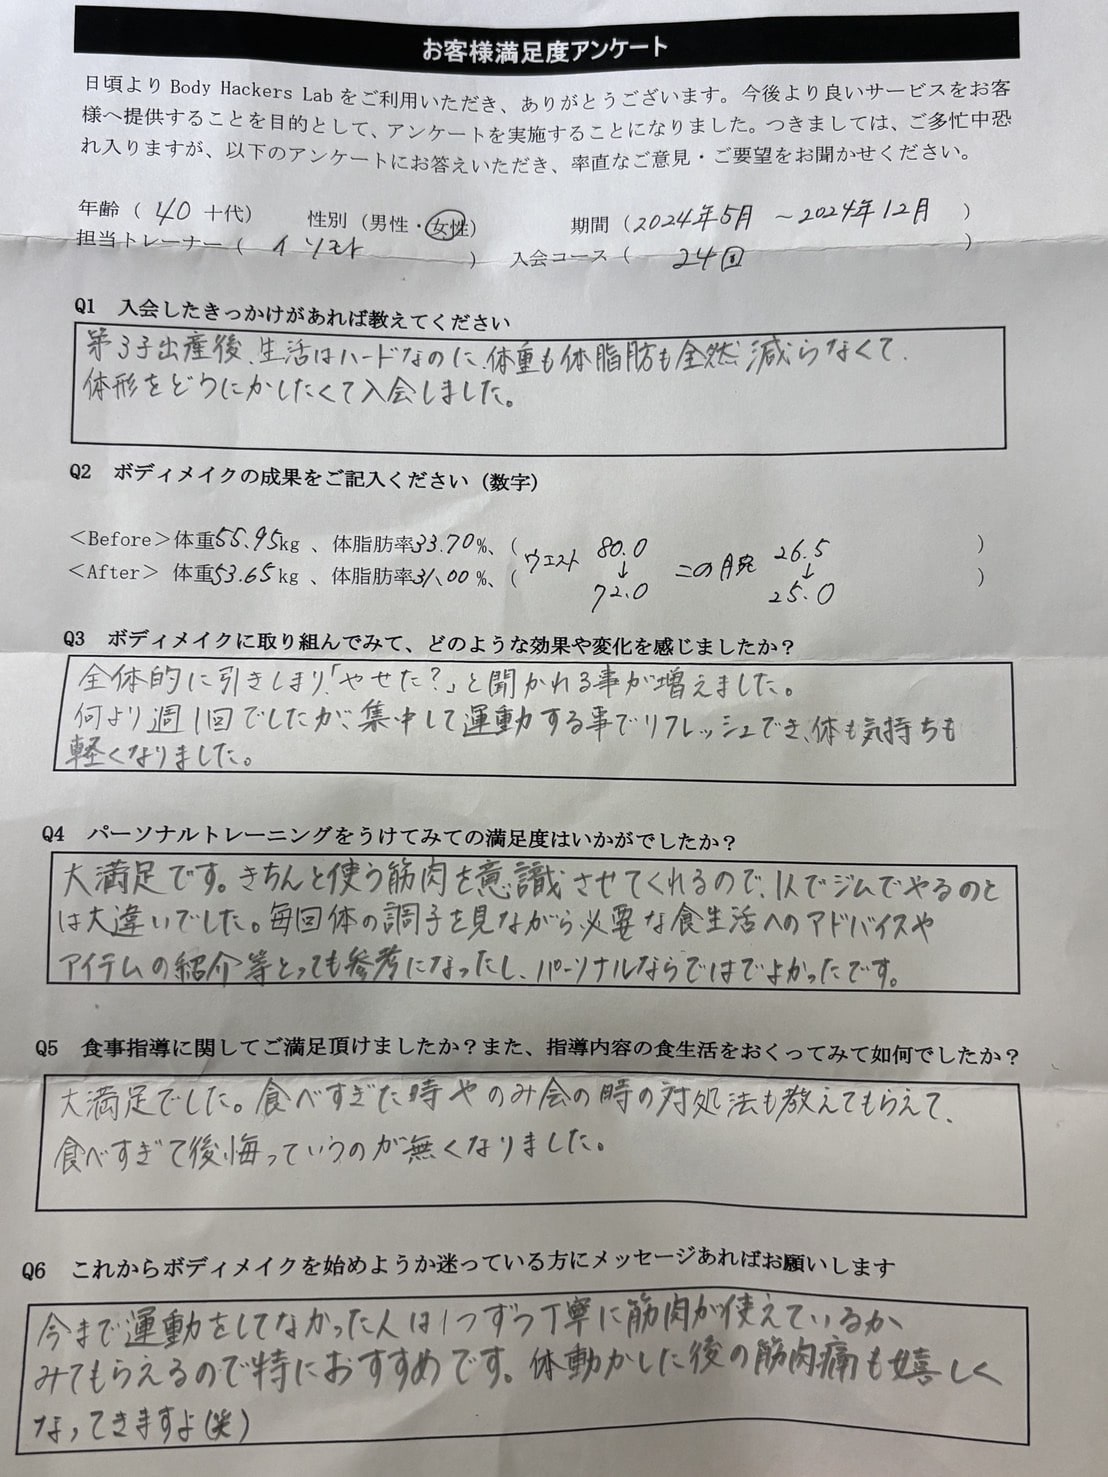 お客様満足度アンケート
日頃より Body Hackers Lab をご利用いただき、ありがとうございます。今後より良いサービスをお客
様へ提供することを目的として、アンケートを実施することになりました。つきましては、ご多忙中恐
れ入りますが、以下のアンケートにお答えいただき、率直なご意見・ご要望をお聞かせください。
年齢（ 40 十代） 性別（男性・女性） 期間（2024年5月 ～2024年12月 ）
担当トレーナー（ イソモト ） 入会コース（ 24回 ）
Q1 入会したきっかけがあれば教えてください
第3子出産後、生活はハードなのに、体重も体脂肪も全然減らなくて、
体形をどうにかしたくて入会しました。
Q2 ボディメイクの成果をご記入ください（数字）
＜Before＞体重55.95kg 、体脂肪率33.70%、（ ウエスト 80.0 二の腕 26.5 ）
↓ ↓
＜After＞ 体重53.65kg 、体脂肪率31.00%、（ 72.0 25.0 ）
Q3 ボディメイクに取り組んでみて、どのような効果や変化を感じましたか？
全体的に引きしまり「やせた？」と聞かれる事が増えました。
何より週1回でしたが、集中して運動する事でリフレッシュでき、体も気持ちも
軽くなりました。
Q4 パーソナルトレーニングをうけてみての満足度はいかがでしたか？
大満足です。きちんと使う筋肉を意識させてくれるので、1人でジムでやるのと
は大違いでした。毎回体の調子を見ながら必要な食生活へのアドバイスや
アイテムの紹介等とっても参考になったし、パーソナルならではでよかったです。
Q5 食事指導に関してご満足頂けましたか？また、指導内容の食生活をおくってみて如何でしたか？
大満足でした。食べすぎた時やのみ会の時の対処法も教えてもらえて、
食べすぎて後悔っていうのが無くなりました。
Q6 これからボディメイクを始めようか迷っている方にメッセージあればお願いします
今まで運動をしてなかった人は1つずつ丁寧に筋肉が使えているか
みてもらえるので特におすすめです。体動かした後の筋肉痛も嬉しく
なってきますよ(笑)